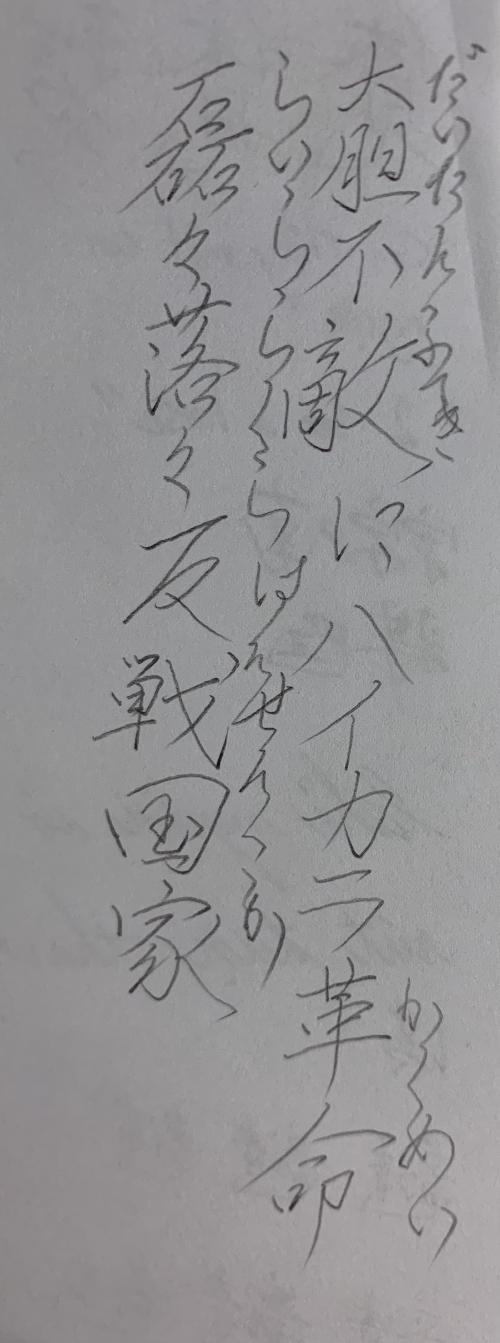 だいたんふてき かくめい
大胆不敵にハイカラ革命
らいらいらくらくはんせんこっか
磊々落々反戦国家